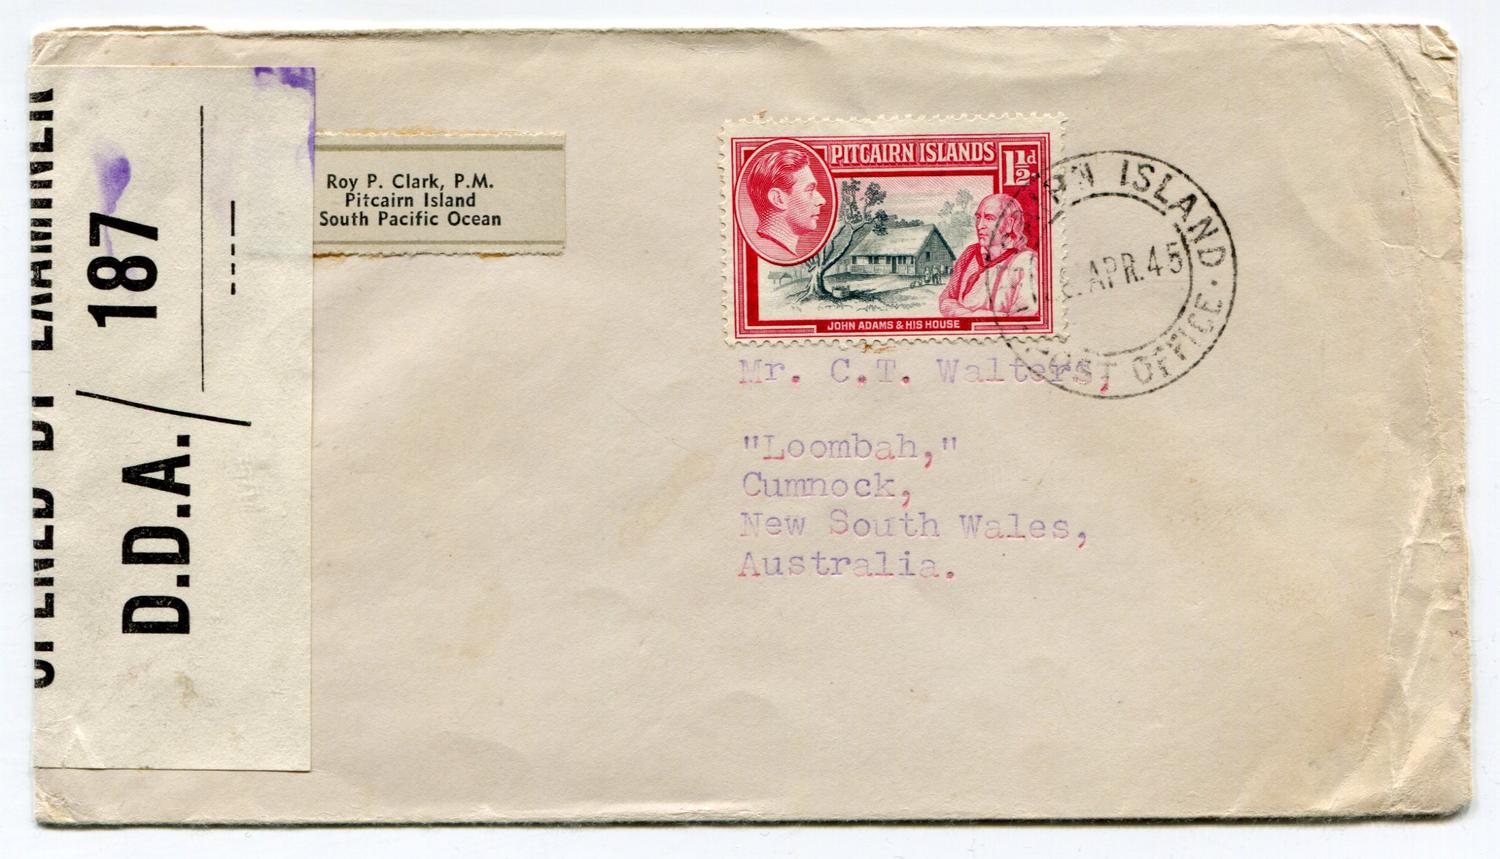 OPENED BY EXAMINER
D.D.A./ 187
Roy P. Clark, P.M.
Pitcairn Island
South Pacific Ocean
PITCAIRN ISLANDS
1½d
JOHN ADAMS & HIS HOUSE
ISLAND
APR.45
POST OFFICE
Mr. C.T. Walters,
"Loombah,"
Cumnock,
New South Wales,
Australia.